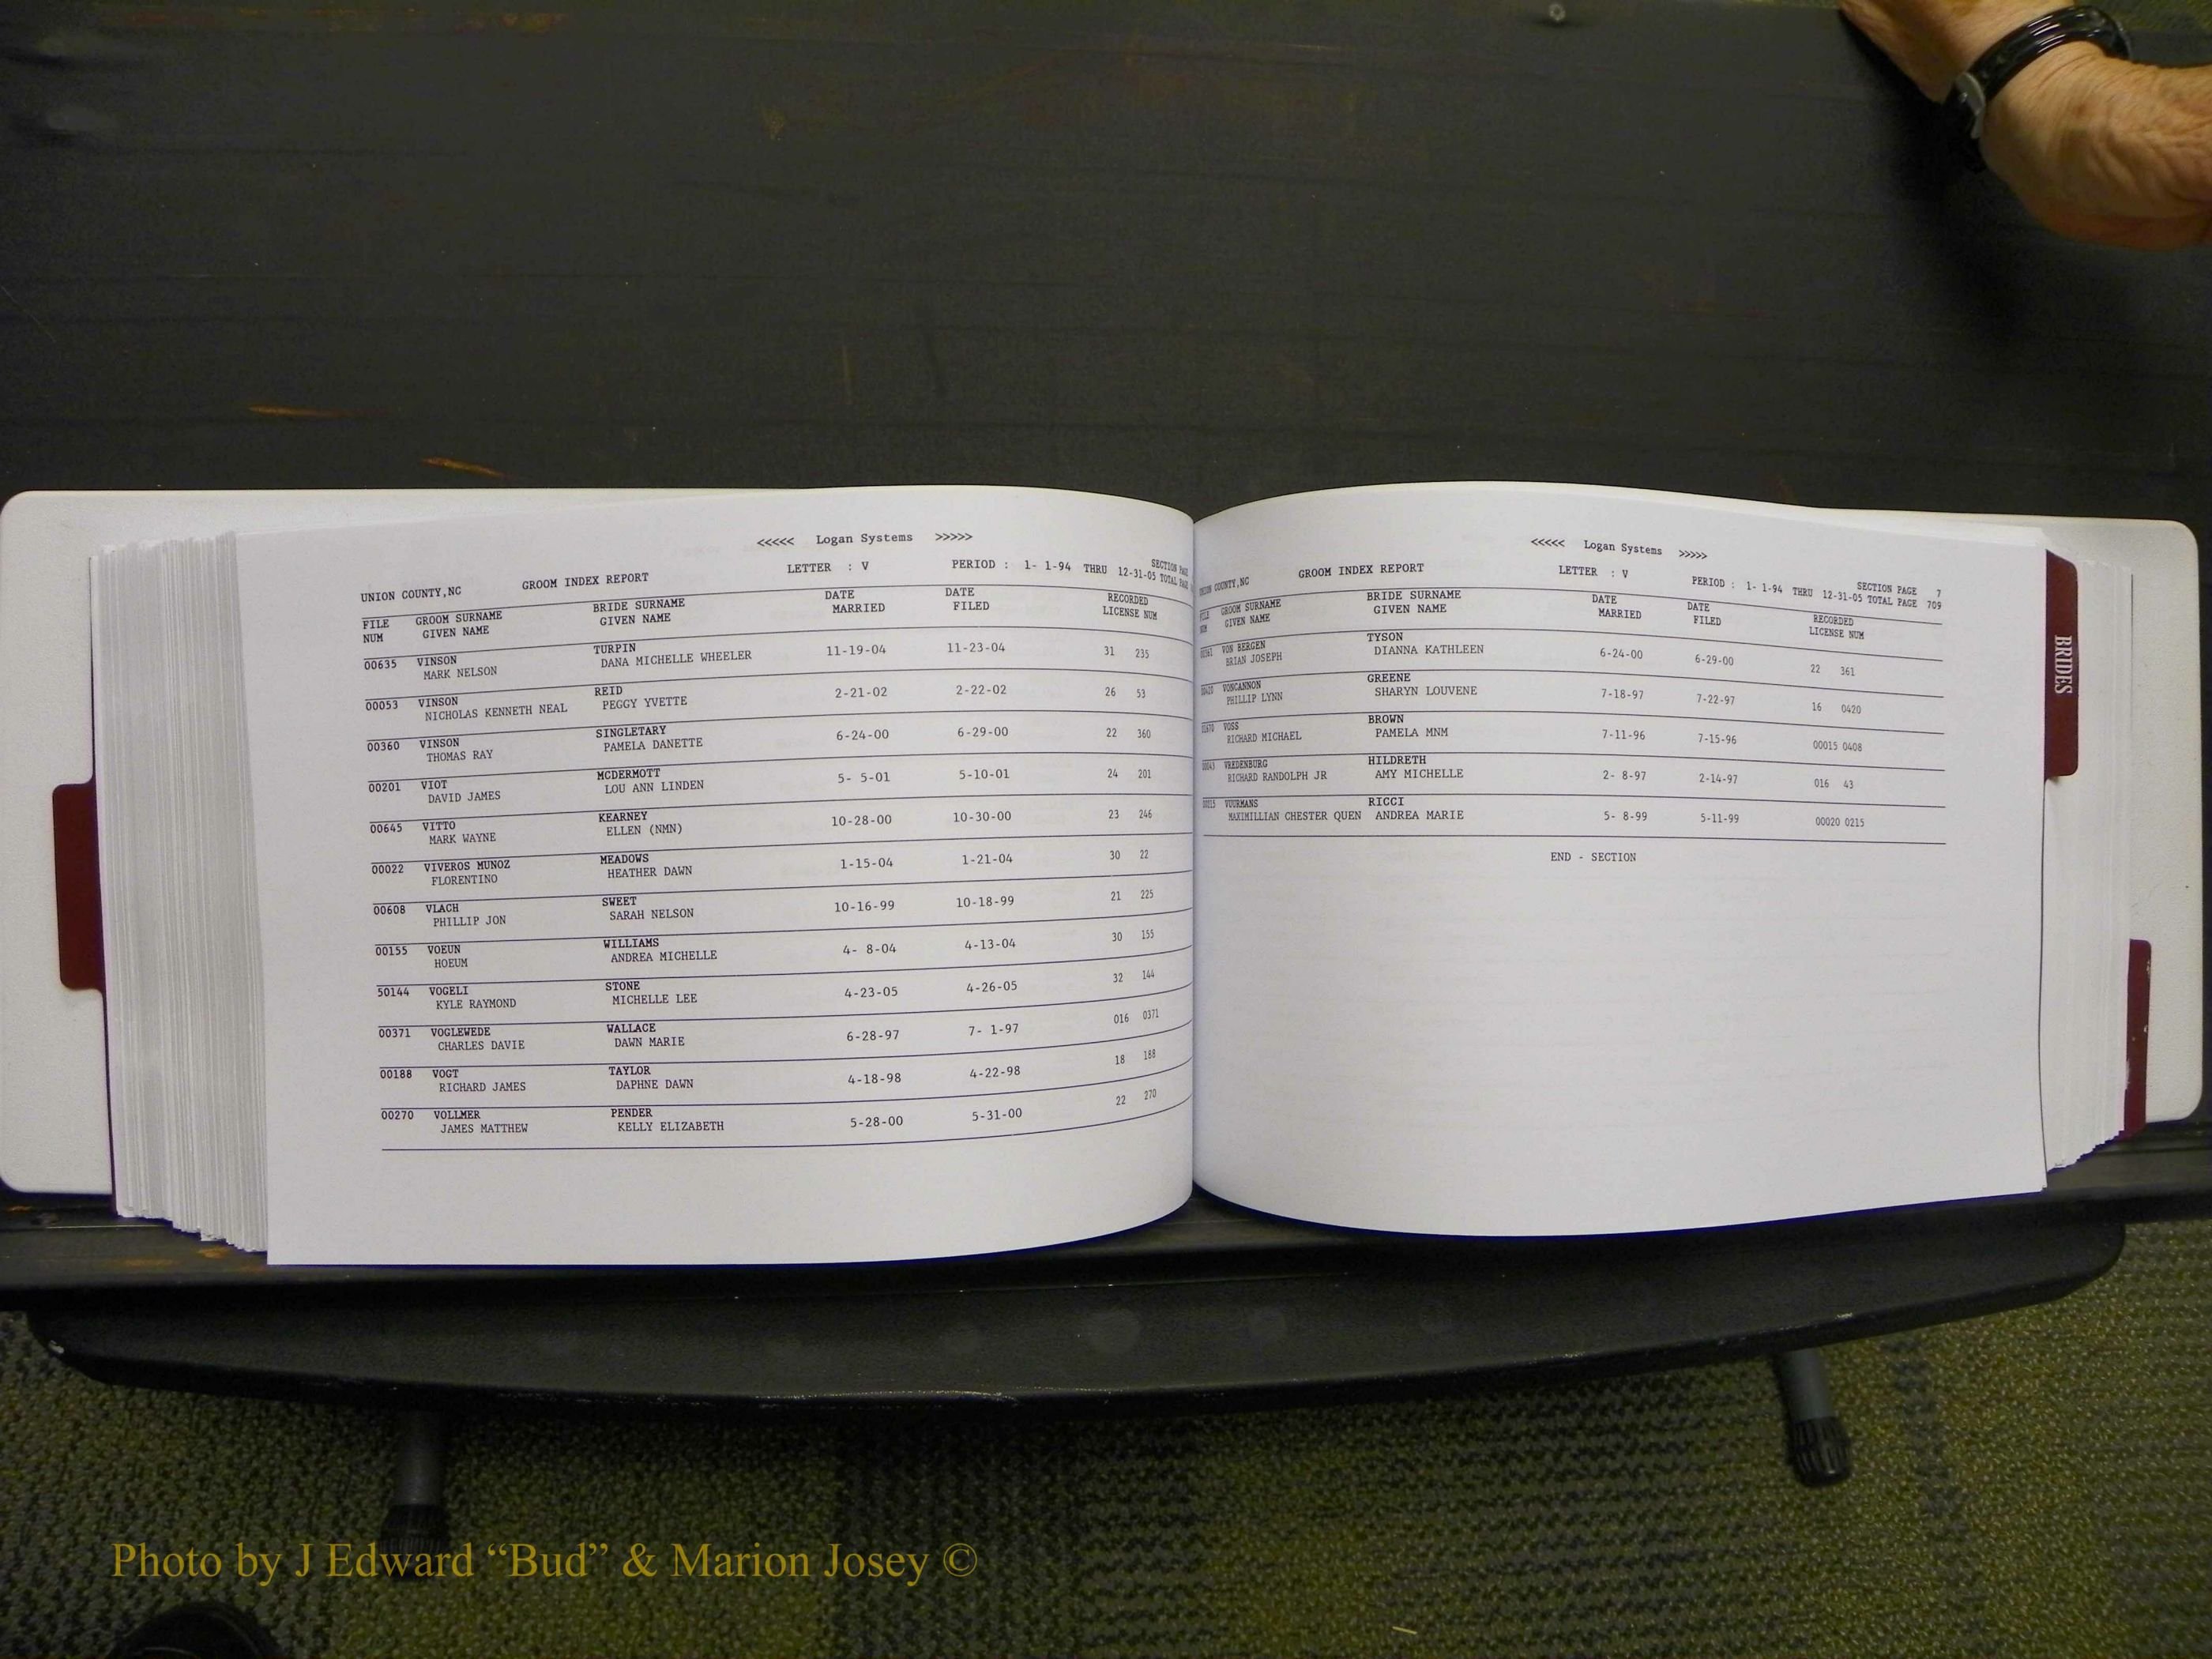 <<<<< Logan Systems >>>>>
UNION COUNTY,NC GROOM INDEX REPORT LETTER : V PERIOD : 1- 1-94 THRU 12-31-05 SECTION PAGE
TOTAL PAGE
FILE GROOM SURNAME BRIDE SURNAME DATE DATE RECORDED
NUM GIVEN NAME GIVEN NAME MARRIED FILED LICENSE NUM
00635 VINSON TURPIN 11-19-04 11-23-04 31 235
MARK NELSON DANA MICHELLE WHEELER
00053 VINSON REID 2-21-02 2-22-02 26 53
NICHOLAS KENNETH NEAL PEGGY YVETTE
00360 VINSON SINGLETARY 6-24-00 6-29-00 22 360
THOMAS RAY PAMELA DANETTE
00201 VIOT MCDERMOTT 5- 5-01 5-10-01 24 201
DAVID JAMES LOU ANN LINDEN
00645 VITTO KEARNEY 10-28-00 10-30-00 23 246
MARK WAYNE ELLEN (NMN)
00022 VIVEROS MUNOZ MEADOWS 1-15-04 1-21-04 30 22
FLORENTINO HEATHER DAWN
00608 VLACH SWEET 10-16-99 10-18-99 21 225
PHILLIP JON SARAH NELSON
00155 VOEUN WILLIAMS 4- 8-04 4-13-04 30 155
HOEUM ANDREA MICHELLE
50144 VOGELI STONE 4-23-05 4-26-05 32 144
KYLE RAYMOND MICHELLE LEE
00371 VOGLEWEDE WALLACE 6-28-97 7- 1-97 016 0371
CHARLES DAVIE DAWN MARIE
00188 VOGT TAYLOR 4-18-98 4-22-98 18 188
RICHARD JAMES DAPHNE DAWN
00270 VOLLMER PENDER 5-28-00 5-31-00 22 270
JAMES MATTHEW KELLY ELIZABETH
<<<<< Logan Systems >>>>>
UNION COUNTY,NC GROOM INDEX REPORT LETTER : V PERIOD : 1- 1-94 THRU 12-31-05 SECTION PAGE 7
TOTAL PAGE 709
FILE GROOM SURNAME BRIDE SURNAME DATE DATE RECORDED
NUM GIVEN NAME GIVEN NAME MARRIED FILED LICENSE NUM
VON BERGEN TYSON 6-24-00 6-29-00 22 361
BRIAN JOSEPH DIANNA KATHLEEN
VONCANNON GREENE 7-18-97 7-22-97 16 0420
PHILLIP LYNN SHARYN LOUVENE
VOSS BROWN 7-11-96 7-15-96 00015 0408
RICHARD MICHAEL PAMELA MNM
VREDENBURG HILDRETH 2- 8-97 2-14-97 016 43
RICHARD RANDOLPH JR AMY MICHELLE
VUURMANS RICCI 5- 8-99 5-11-99 00020 0215
MAXIMILLIAN CHESTER QUEN ANDREA MARIE
END - SECTION
BRIDES
Photo by J Edward “Bud” & Marion Josey ©